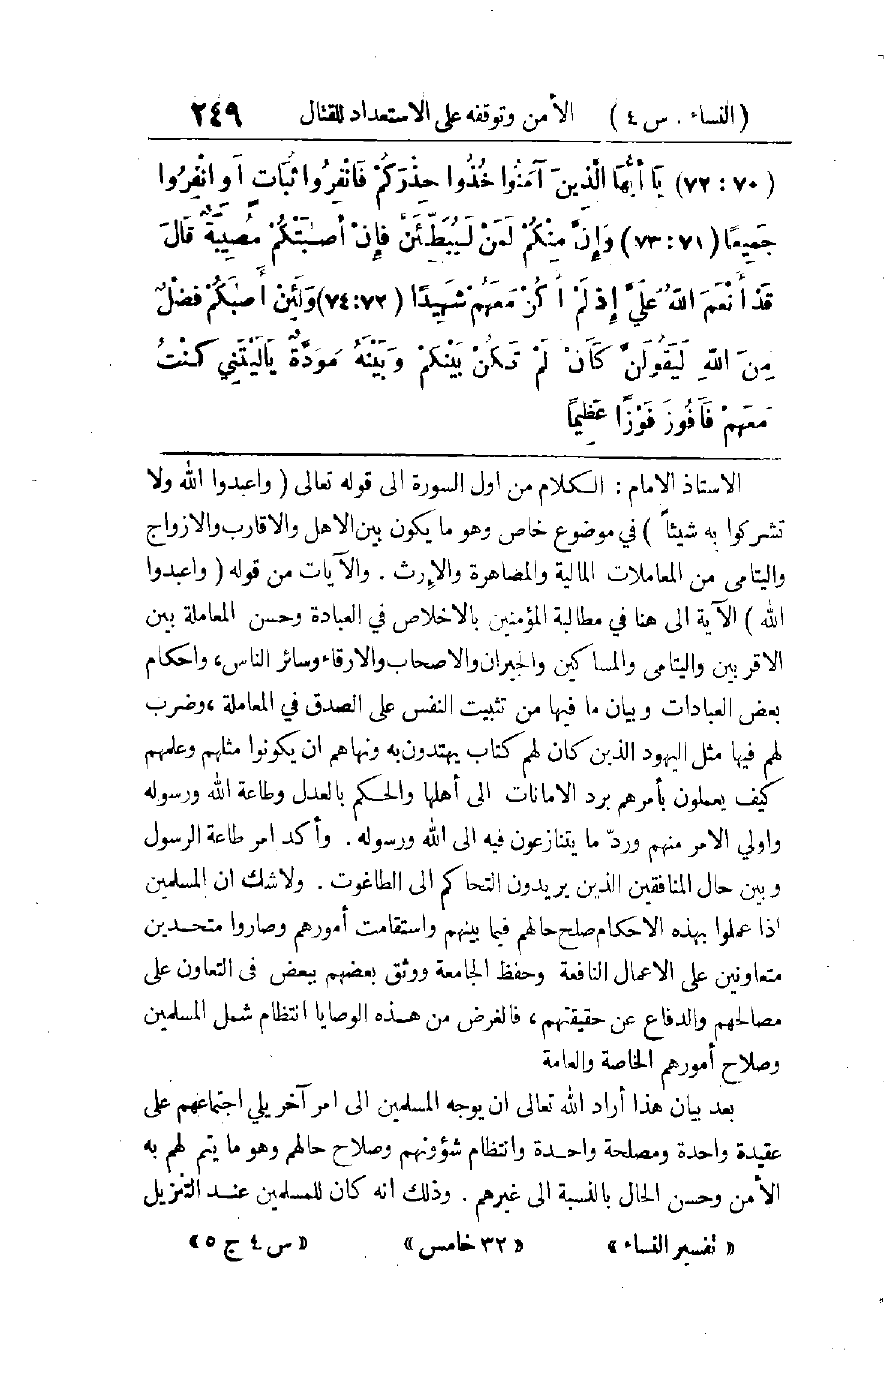 (النساء . س ٤) الأمن وتوقفه على الاستعداد للقتال ٢٤٩
(٧٠ : ٧٢) يَا أَيُّهَا الَّذِينَ آمَنُوا خُذُوا حِذْرَكُمْ فَانْفِرُوا ثُبَاتٍ أَوِ انْفِرُوا
جَمِيعًا (٧١ : ٧٣) وَإِنَّ مِنْكُمْ لَمَنْ لَيُبَطِّئَنَّ فَإِنْ أَصَـٰبَتْكُمْ مُصِيبَةٌ قَالَ
قَدْ أَنْعَمَ اللهُ عَلَيَّ إِذْ لَمْ أَكُنْ مَعَهُمْ شَهِيدًا (٧٢ : ٧٤) وَلَئِنْ أَصَـٰبَكُمْ فَضْلٌ
مِنَ اللهِ لَيَقُولَنَّ كَأَنْ لَمْ تَكُنْ بَيْنَكُمْ وَبَيْنَهُ مَوَدَّةٌ يَالَيْتَنِي كُنْتُ
مَعَهُمْ فَأَفُوزَ فَوْزًا عَظِيمًا
الاستاذ الامام : الكلام من اول السورة الى قوله تعالى ( واعبدوا الله ولا
تشركوا به شيئاً ) في موضوع خاص وهو ما يكون بين الاهل والاقارب والازواج
واليتامى من المعاملات المالية والمصاهرة والإرث . والآيات من قوله ( واعبدوا
الله ) الآية الى هنا في مطالبة المؤمنين بالاخلاص في العبادة وحسن المعاملة بين
الاقربين واليتامى والمساكين والجيران والاصحاب والارقاء وسائر الناس، واحكام
بعض العبادات وبيان ما فيها من تثبيت النفس على الصدق في المعاملة ، وضرب
لهم فيها مثل اليهود الذين كان لهم كتاب يهتدون به ونهاهم ان يكونوا مثلهم وعلمهم
كيف يعملون بأمرهم برد الامانات الى أهلها والحكم بالعدل وطاعة الله ورسوله
واولي الامر منهم وردّ ما يتنازعون فيه الى الله ورسوله . وأكد امر طاعة الرسول
وبين حال المنافقين الذين يريدون التحاكم الى الطاغوت . ولا شك ان المسلمين
اذا عملوا بهذه الاحكام صلح حالهم فيما بينهم واستقامت أمورهم وصاروا متحدين
متعاونين على الاعمال النافعة وحفظ الجامعة ووثق بعضهم ببعض فى التعاون على
مصالحهم والدفاع عن حقيقتهم ، فالغرض من هذه الوصايا انتظام شمل المسلمين
وصلاح أمورهم الخاصة والعامة
بعد بيان هذا أراد الله تعالى ان يوجه المسلمين الى امر آخر يلي اجتماعهم على
عقيدة واحدة ومصلحة واحدة وانتظام شؤونهم وصلاح حالهم وهو ما يتم لهم به
الأمن وحسن الحال بالنسبة الى غيرهم . وذلك انه كان للمسلمين عند التنزيل
« تفسير النساء » « ٣٢ خامس » « س ٤ ج ٥ »